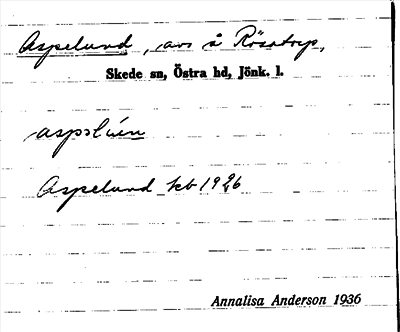 Aspelund, avs å Rösatorp,
Skede sn, Östra hd, Jönk. l.
aspslúen
Aspelund kb 1926
Annalisa Anderson 1936